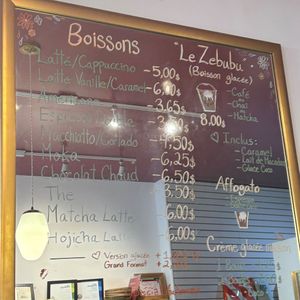 Boissons
Latté/Cappucino -5,00$
Latté Vanille/Caramel -6,00$
Americano -3,65$
Espresso
Macchiato/Cortado -4,50$
Moka -6,25$
Chocolat Chaud -6,50$
Thé 3,50$
Matcha Latte -6,00$
Hojicha La -6,00$
Version glacée +
Grand Format +
"Le Zebubu"
(Boisson glacée)
-Café
-Chai
-Matcha
8,00$
Inclus:
-Caramel
-Lait de Macadam
-Glace Coco
Affogato
Crème glacée